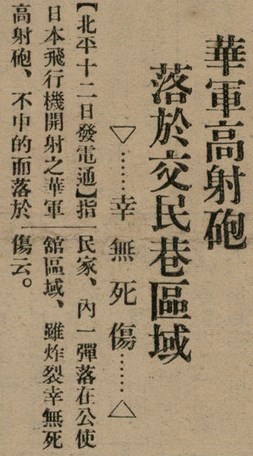 華軍高射砲
落於交民巷區域
▽……幸無死傷……△
【北平十二日發電通】指
日本飛行機開射之華軍
高射砲、不中的而落於
民家、內一彈落在公使
舘區域、雖炸裂幸無死
傷云。